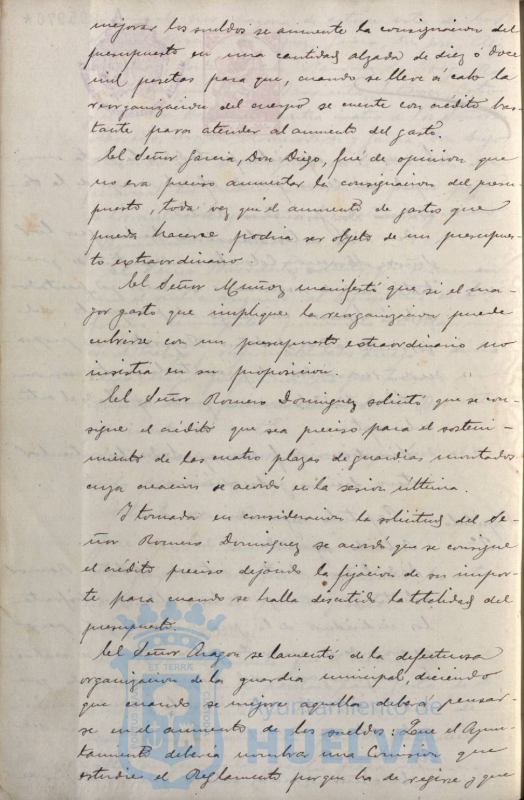 mejorar los sueldos se aumente la consignacion del
presupuesto en una cantidad alzada de diez ó doce
mil pesetas para que, cuando se lleve á cabo la
reorganizacion del cuerpo se cuente con crédito bas-
tante para atender al aumento del gasto.
El Señor Garcia, Don Diego, fué de opinion que
no era preciso aumentar la consignacion del presu-
puesto, toda vez que el aumento de gastos que
pueda hacerse podria ser objeto de un presupues-
to extraordinario.
El Señor Muñoz manifestó que si el ma-
yor gasto que implique la reorganizacion puede
cubrirse con un presupuesto extraordinario no
insistia en su proposicion.
El Señor Romero Dominguez solicitó que se con-
signe el crédito que sea preciso para el sosteni-
miento de las cuatro plazas de guardias montados
cuya creacion se acordó en la sesion última.
Y tomada en consideracion la solicitud del Se-
ñor Romero Dominguez se acordó que se consigne
el crédito preciso dejando la fijacion de su impor-
te para cuando se halla discutido la totalidad del
presupuesto.
El Señor Aragon se lamentó de la defectuosa
organizacion de la guardia municipal, diciendo
que cuando se mejore aquella deberá pensar-
se en el aumento de los sueldos: Que el Ayun-
tamiento deberia nombrar una Comision que
estudie el Reglamento porque ha de regirse y que
ET TERRÆ
Ayuntamiento de
HUELVA